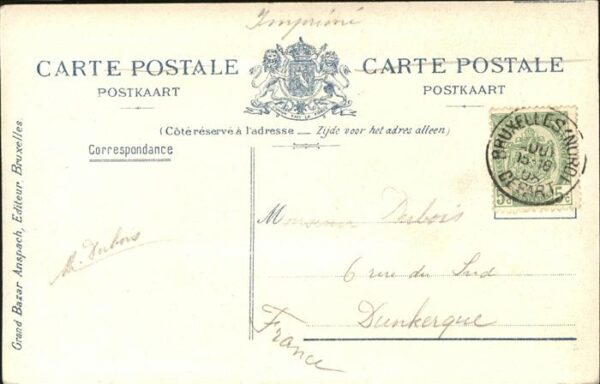 Imprimé
CARTE POSTALE CARTE POSTALE
POSTKAART POSTKAART
(Côté réservé à l'adresse — Zijde voor het adres alleen)
Correspondance
BRUXELLES (NORD)
15-16
DEPART
5c 5c
Monsieur Dubois
6 rue du Sud
Dunkerque
France
Dubois
Grand Bazar Anspach, Editeur, Bruxelles.